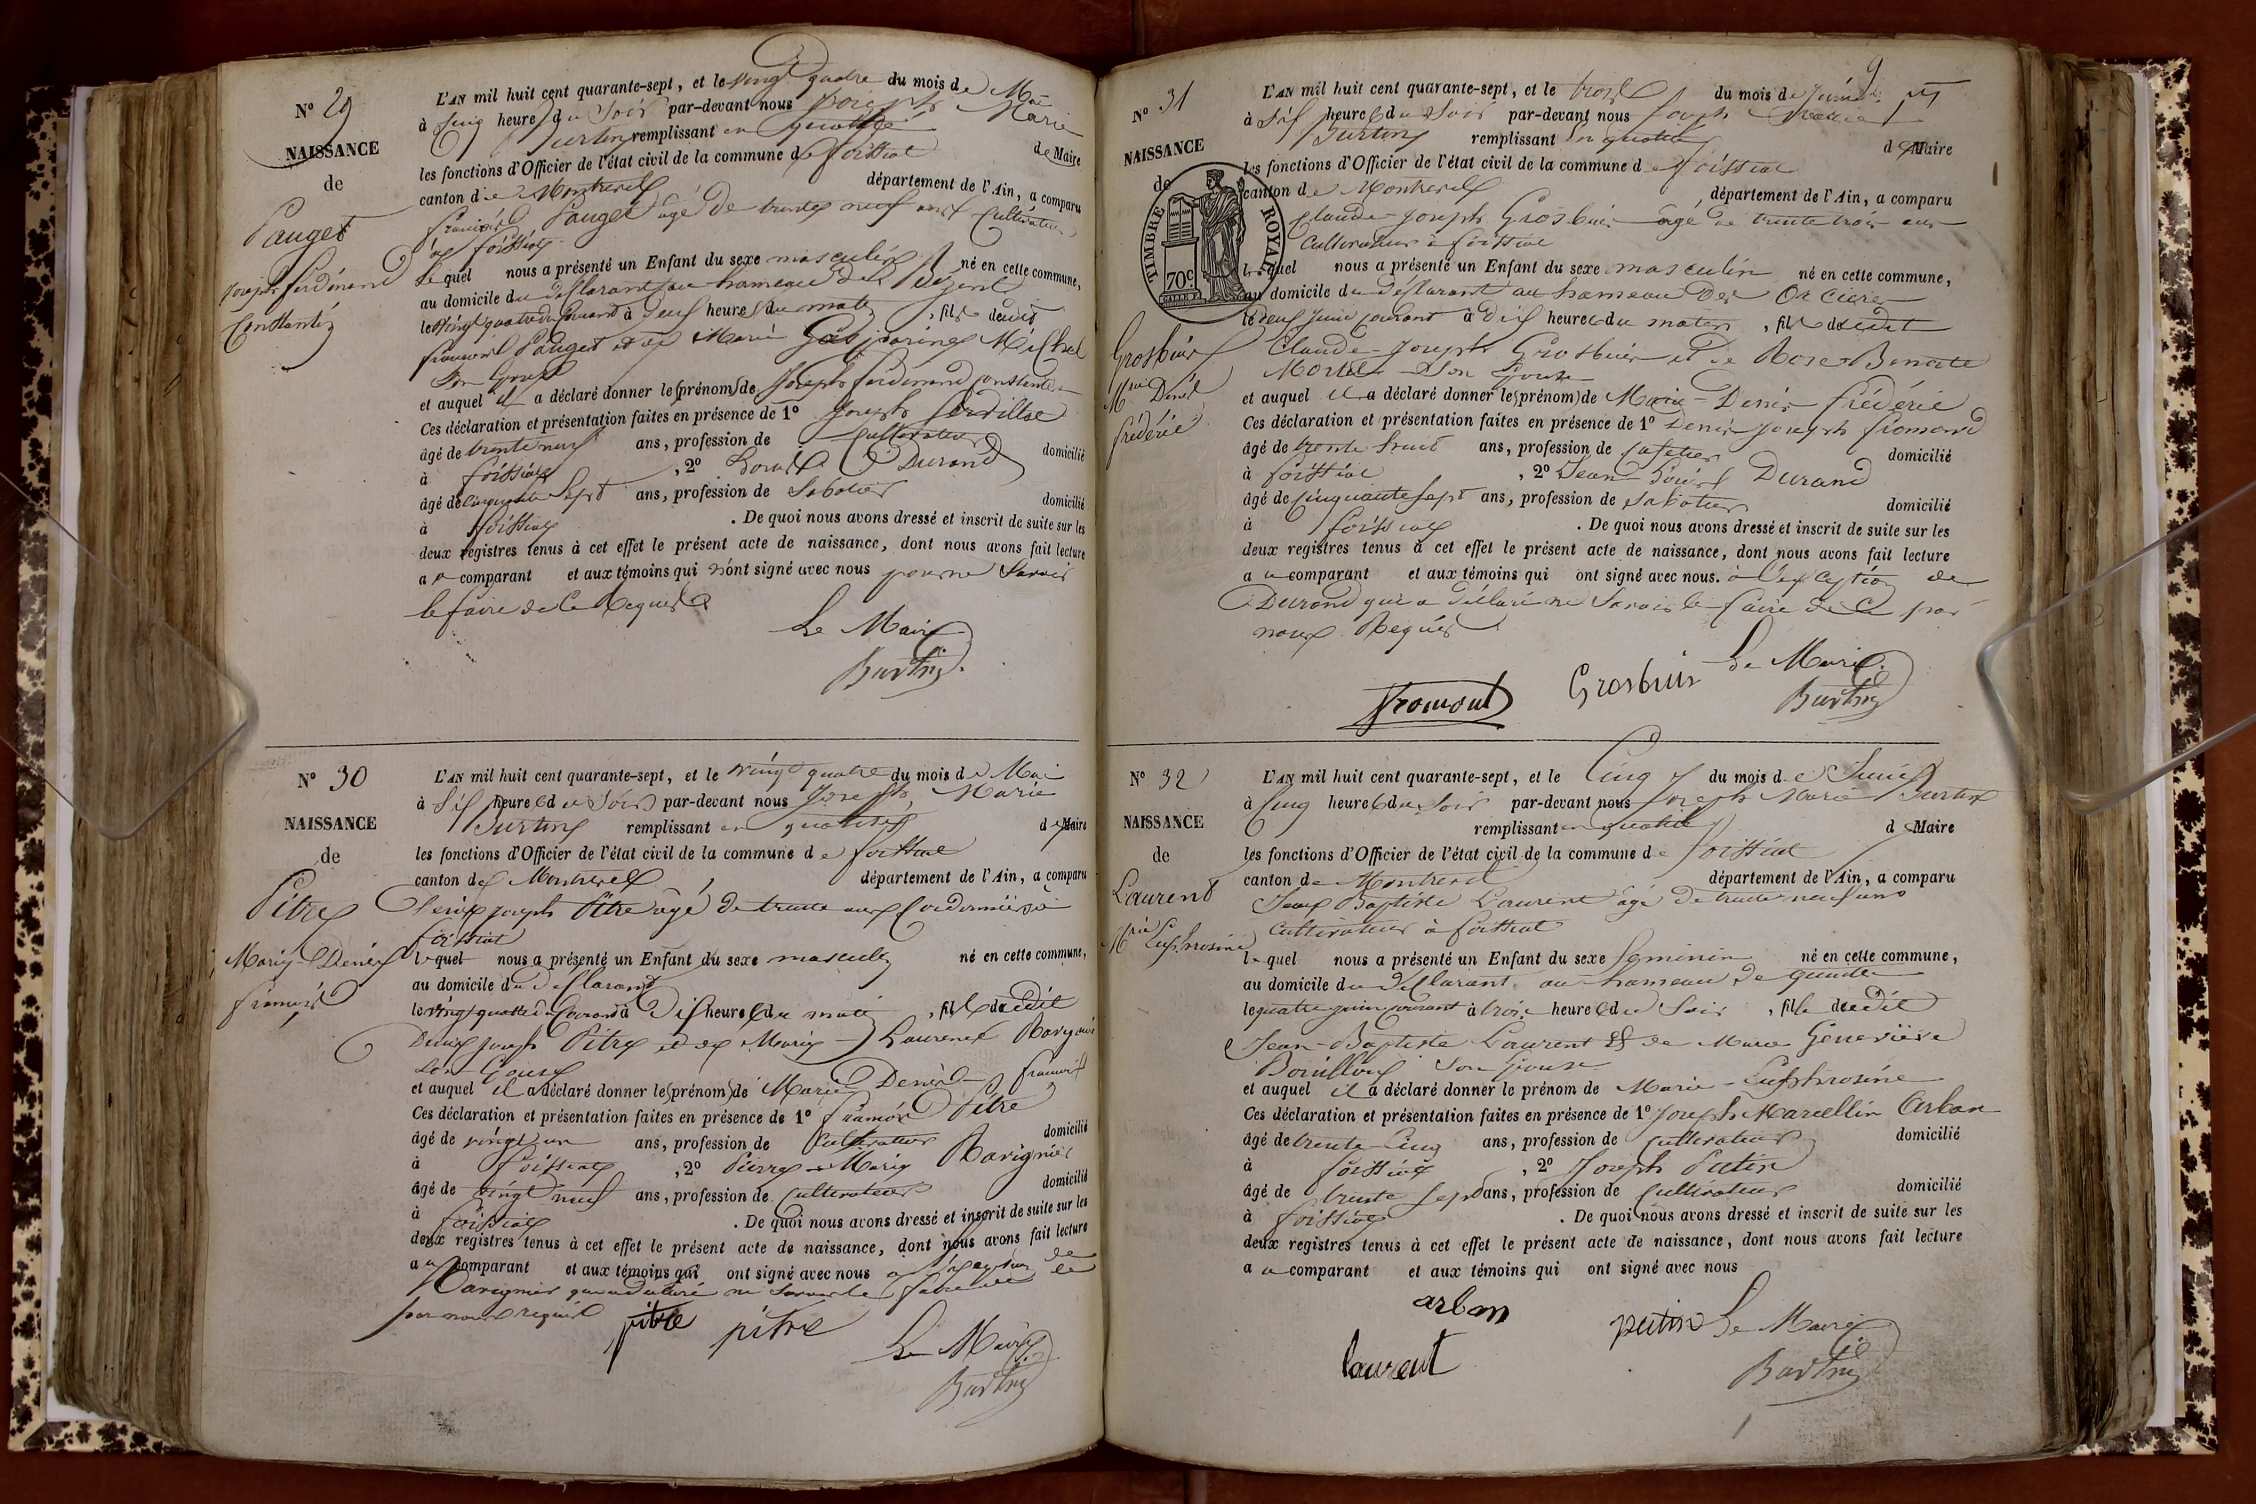 N° 29
NAISSANCE
de
Pauget
Joseph ferdinand
Constantin
L'AN mil huit cent quarante-sept, et le vingt quatre du mois de Mai
à cinq heures du Soir par-devant nous Joseph Marie
Burtin remplissant en qualité de Maire
les fonctions d'Officier de l'état civil de la commune de foissiat
canton de Montrevel département de l'Ain, a comparu
françois Pauget âgé de trente neuf ans Cultivateur
à foissiat
lequel nous a présenté un Enfant du sexe masculin né en cette commune,
au domicile du déclarant au hameau des
le vingt quatre du Courant à deux heures du matin, fils dudit
françois Pauget et de Marie Michel
Son Epouse
et auquel il a déclaré donner les prénoms de Joseph ferdinand Constantin
Ces déclaration et présentation faites en présence de 1° Joseph
âgé de trente neuf ans, profession de Cultivateur domicilié
à foissiat, 2° Louis Durand
âgé de cinquante Sept ans, profession de Sabotier domicilié
à foissiat. De quoi nous avons dressé et inscrit de suite sur les
deux registres tenus à cet effet le présent acte de naissance, dont nous avons fait lecture
au comparant et aux témoins qui n'ont signé avec nous pour ne Savoir
le faire de ce Requis
Le Maire
Burtin
N° 30
NAISSANCE
de
Pitre
Marie Denis
françois
L'AN mil huit cent quarante-sept, et le vingt quatre du mois de Mai
à Six heures du Soir par-devant nous Joseph Marie
Burtin remplissant en qualité de Maire
les fonctions d'Officier de l'état civil de la commune de foissiat
canton de Montrevel département de l'Ain, a comparu
Denis joseph Pitre âgé de trente ans Cordonnier à
foissiat
lequel nous a présenté un Enfant du sexe masculin né en cette commune,
au domicile du déclarant
le vingt quatre du Courant à Dix heures du matin, fils dudit
Denis joseph Pitre et de Marie Laurence Ravignié
Son Epouse
et auquel il a déclaré donner les prénoms de Marie Denis françois
Ces déclaration et présentation faites en présence de 1° françois Pitre
âgé de vingt un ans, profession de Cultivateur domicilié
à foissiat, 2° Pierre Marie Ravignier
âgé de vingt neuf ans, profession de Cultivateur domicilié
à foissiat. De quoi nous avons dressé et inscrit de suite sur les
deux registres tenus à cet effet le présent acte de naissance, dont nous avons fait lecture
au comparant et aux témoins qui ont signé avec nous à l'exception de
Ravignier qui a déclaré ne Savoir le faire de ce
par nous requis
pitre pitre
Le Maire
Burtin
9
N° 31
NAISSANCE
de
TIMBRE ROYAL
70 c.
Grosbuis
Mie Denis
frédéric
L'AN mil huit cent quarante-sept, et le trois du mois de Juin
à Six heures du Soir par-devant nous Joseph Marie
Burtin remplissant en qualité de Maire
les fonctions d'Officier de l'état civil de la commune de foissiat
canton de Montrevel département de l'Ain, a comparu
Claude Joseph Grosbuis âgé de trente trois ans
Cultivateur à foissiat
lequel nous a présenté un Enfant du sexe masculin né en cette commune,
au domicile du déclarant au hameau des Orcières
le deux Juin Courant à dix heures du matin, fils dudit
Claude Joseph Grosbuis et de Rose Benoite
Morel Son Epouse
et auquel il a déclaré donner les prénoms de Marie Denis frédéric
Ces déclaration et présentation faites en présence de 1° Denis joseph fromond
âgé de trente huit ans, profession de Cafetier domicilié
à foissiat, 2° Jean Louis Durand
âgé de Cinquante Sept ans, profession de Sabotier domicilié
à foissiat. De quoi nous avons dressé et inscrit de suite sur les
deux registres tenus à cet effet le présent acte de naissance, dont nous avons fait lecture
au comparant et aux témoins qui ont signé avec nous. à l'exception de
Durand qui a déclaré ne Savoir le faire de ce par
nous Requis
Le Maire
fromont Grosbuis Burtin
N° 32
NAISSANCE
de
Laurent
Mie Euphrosine
L'AN mil huit cent quarante-sept, et le Cinq du mois de Juin
à Cinq heures du Soir par-devant nous Joseph Marie Burtin
remplissant en qualité de Maire
les fonctions d'Officier de l'état civil de la commune de foissiat
canton de Montrevel département de l'Ain, a comparu
Jean Baptiste Laurent âgé de trente neuf ans
Cultivateur à foissiat
lequel nous a présenté un Enfant du sexe feminin né en cette commune,
au domicile du déclarant au hameau de
le quatre juin courant à trois heures du Soir, fille dudit
Jean-Baptiste Laurent et de Marie Geneviève
Bouilloux Son Epouse
et auquel il a déclaré donner le prénom de Marie-Euphrosine
Ces déclaration et présentation faites en présence de 1° Joseph Marcellin Arban
âgé de trente Cinq ans, profession de Cultivateur domicilié
à foissiat, 2° Joseph Putin
âgé de trente Sept ans, profession de Cultivateur domicilié
à foissiat. De quoi nous avons dressé et inscrit de suite sur les
deux registres tenus à cet effet le présent acte de naissance, dont nous avons fait lecture
au comparant et aux témoins qui ont signé avec nous
arban
putin Le Maire
laurent Burtin